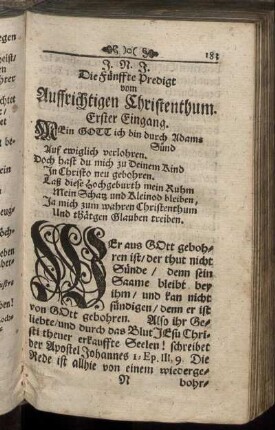 183
J. N. J.
Die Fünffte Predigt
vom
Auffrichtigen Christenthum.
Erster Eingang.
MEin GOTT ich bin durch Adams
Sünd
Auf ewiglich verlohren.
Doch hast du mich zu Deinem Kind
In Christo neu gebohren.
Laß diese Hochgeburth mein Ruhm
Mein Schatz und Kleinod bleiben,
Ja mich zum wahren Christenthum
Und thätgen Glauben treiben.
WEr aus GOtt geboh-
ren ist/ der thut nicht
Sünde / denn sein
Saame bleibt bey
ihm / und kan nicht
sündigen / denn er ist
von GOtt gebohren. Also ihr Ge-
liebte/ und durch das Blut JEsu Chri-
sti theuer erkauffte Seelen! schreibet
der Apostel Johannes 1. Ep. III, 9. Die
Rede ist allhie von einem wiederge-
N bohr-